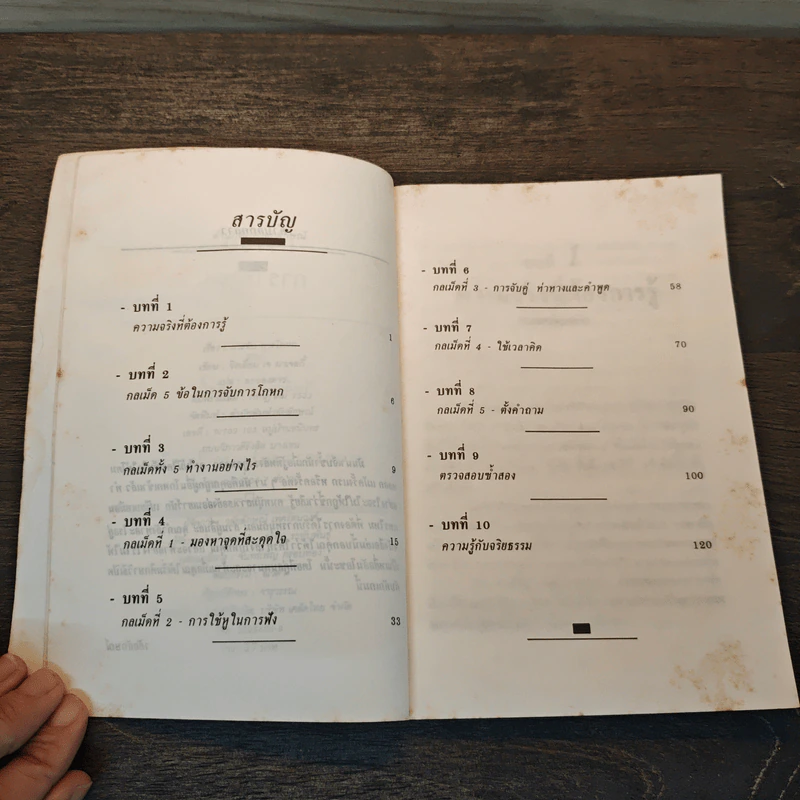 สารบัญ
- บทที่ 1
ความจริงที่ต้องการรู้ 1
- บทที่ 2
กลเม็ด 5 ข้อในการจับการโกหก 6
- บทที่ 3
กลเม็ดทั้ง 5 ทำงานอย่างไร 9
- บทที่ 4
กลเม็ดที่ 1 - มองหาจุดที่สะดุดใจ 15
- บทที่ 5
กลเม็ดที่ 2 - การใช้หูในการฟัง 33
- บทที่ 6
กลเม็ดที่ 3 - การจับคู่ ท่าทางและคำพูด 58
- บทที่ 7
กลเม็ดที่ 4 - ใช้เวลาคิด 70
- บทที่ 8
กลเม็ดที่ 5 - ตั้งคำถาม 90
- บทที่ 9
ตรวจสอบซ้ำสอง 100
- บทที่ 10
ความรู้กับจริยธรรม 120